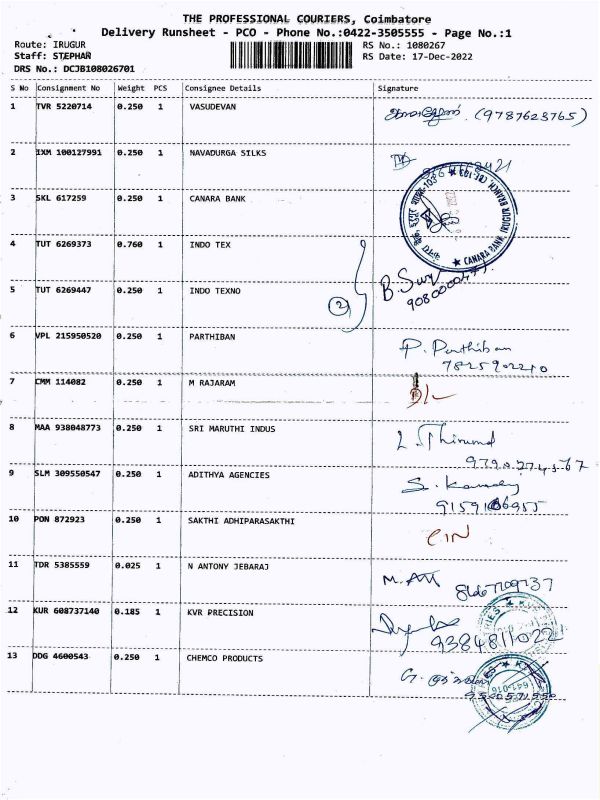 THE PROFESSIONAL COURIERS, Coimbatore
Delivery Runsheet - PCO - Phone No.:0422-3505555 - Page No.:1
Route: IRUGUR
RS No.: 1080267
Staff: STEPHAN
RS Date: 17-Dec-2022
DRS No.: DCJB108026701
S No Consignment No Weight PCS Consignee Details Signature
1 TVR 5220714 0.250 1 VASUDEVAN (9787623765)
2 IXM 100127991 0.250 1 NAVADURGA SILKS
3 SKL 617259 0.250 1 CANARA BANK
CANARA BANK, IRUGUR BRANCH
4 TUT 6269373 0.760 1 INDO TEX
5 TUT 6269447 0.250 1 INDO TEXNO 2 B.
6 VPL 215950520 0.250 1 PARTHIBAN P. Parthiban
7825902210
7 CMM 114082 0.250 1 M RAJARAM
8 MAA 938048773 0.250 1 SRI MARUTHI INDUS
9790274567
9 SLM 309550547 0.250 1 ADITHYA AGENCIES S.
10 PON 872923 0.250 1 SAKTHI ADHIPARASAKTHI
11 TDR 5385559 0.025 1 N ANTONY JEBARAJ M.
12 KUR 608737140 0.185 1 KVR PRECISION
9384811022
13 DDG 4600543 0.250 1 CHEMCO PRODUCTS G.